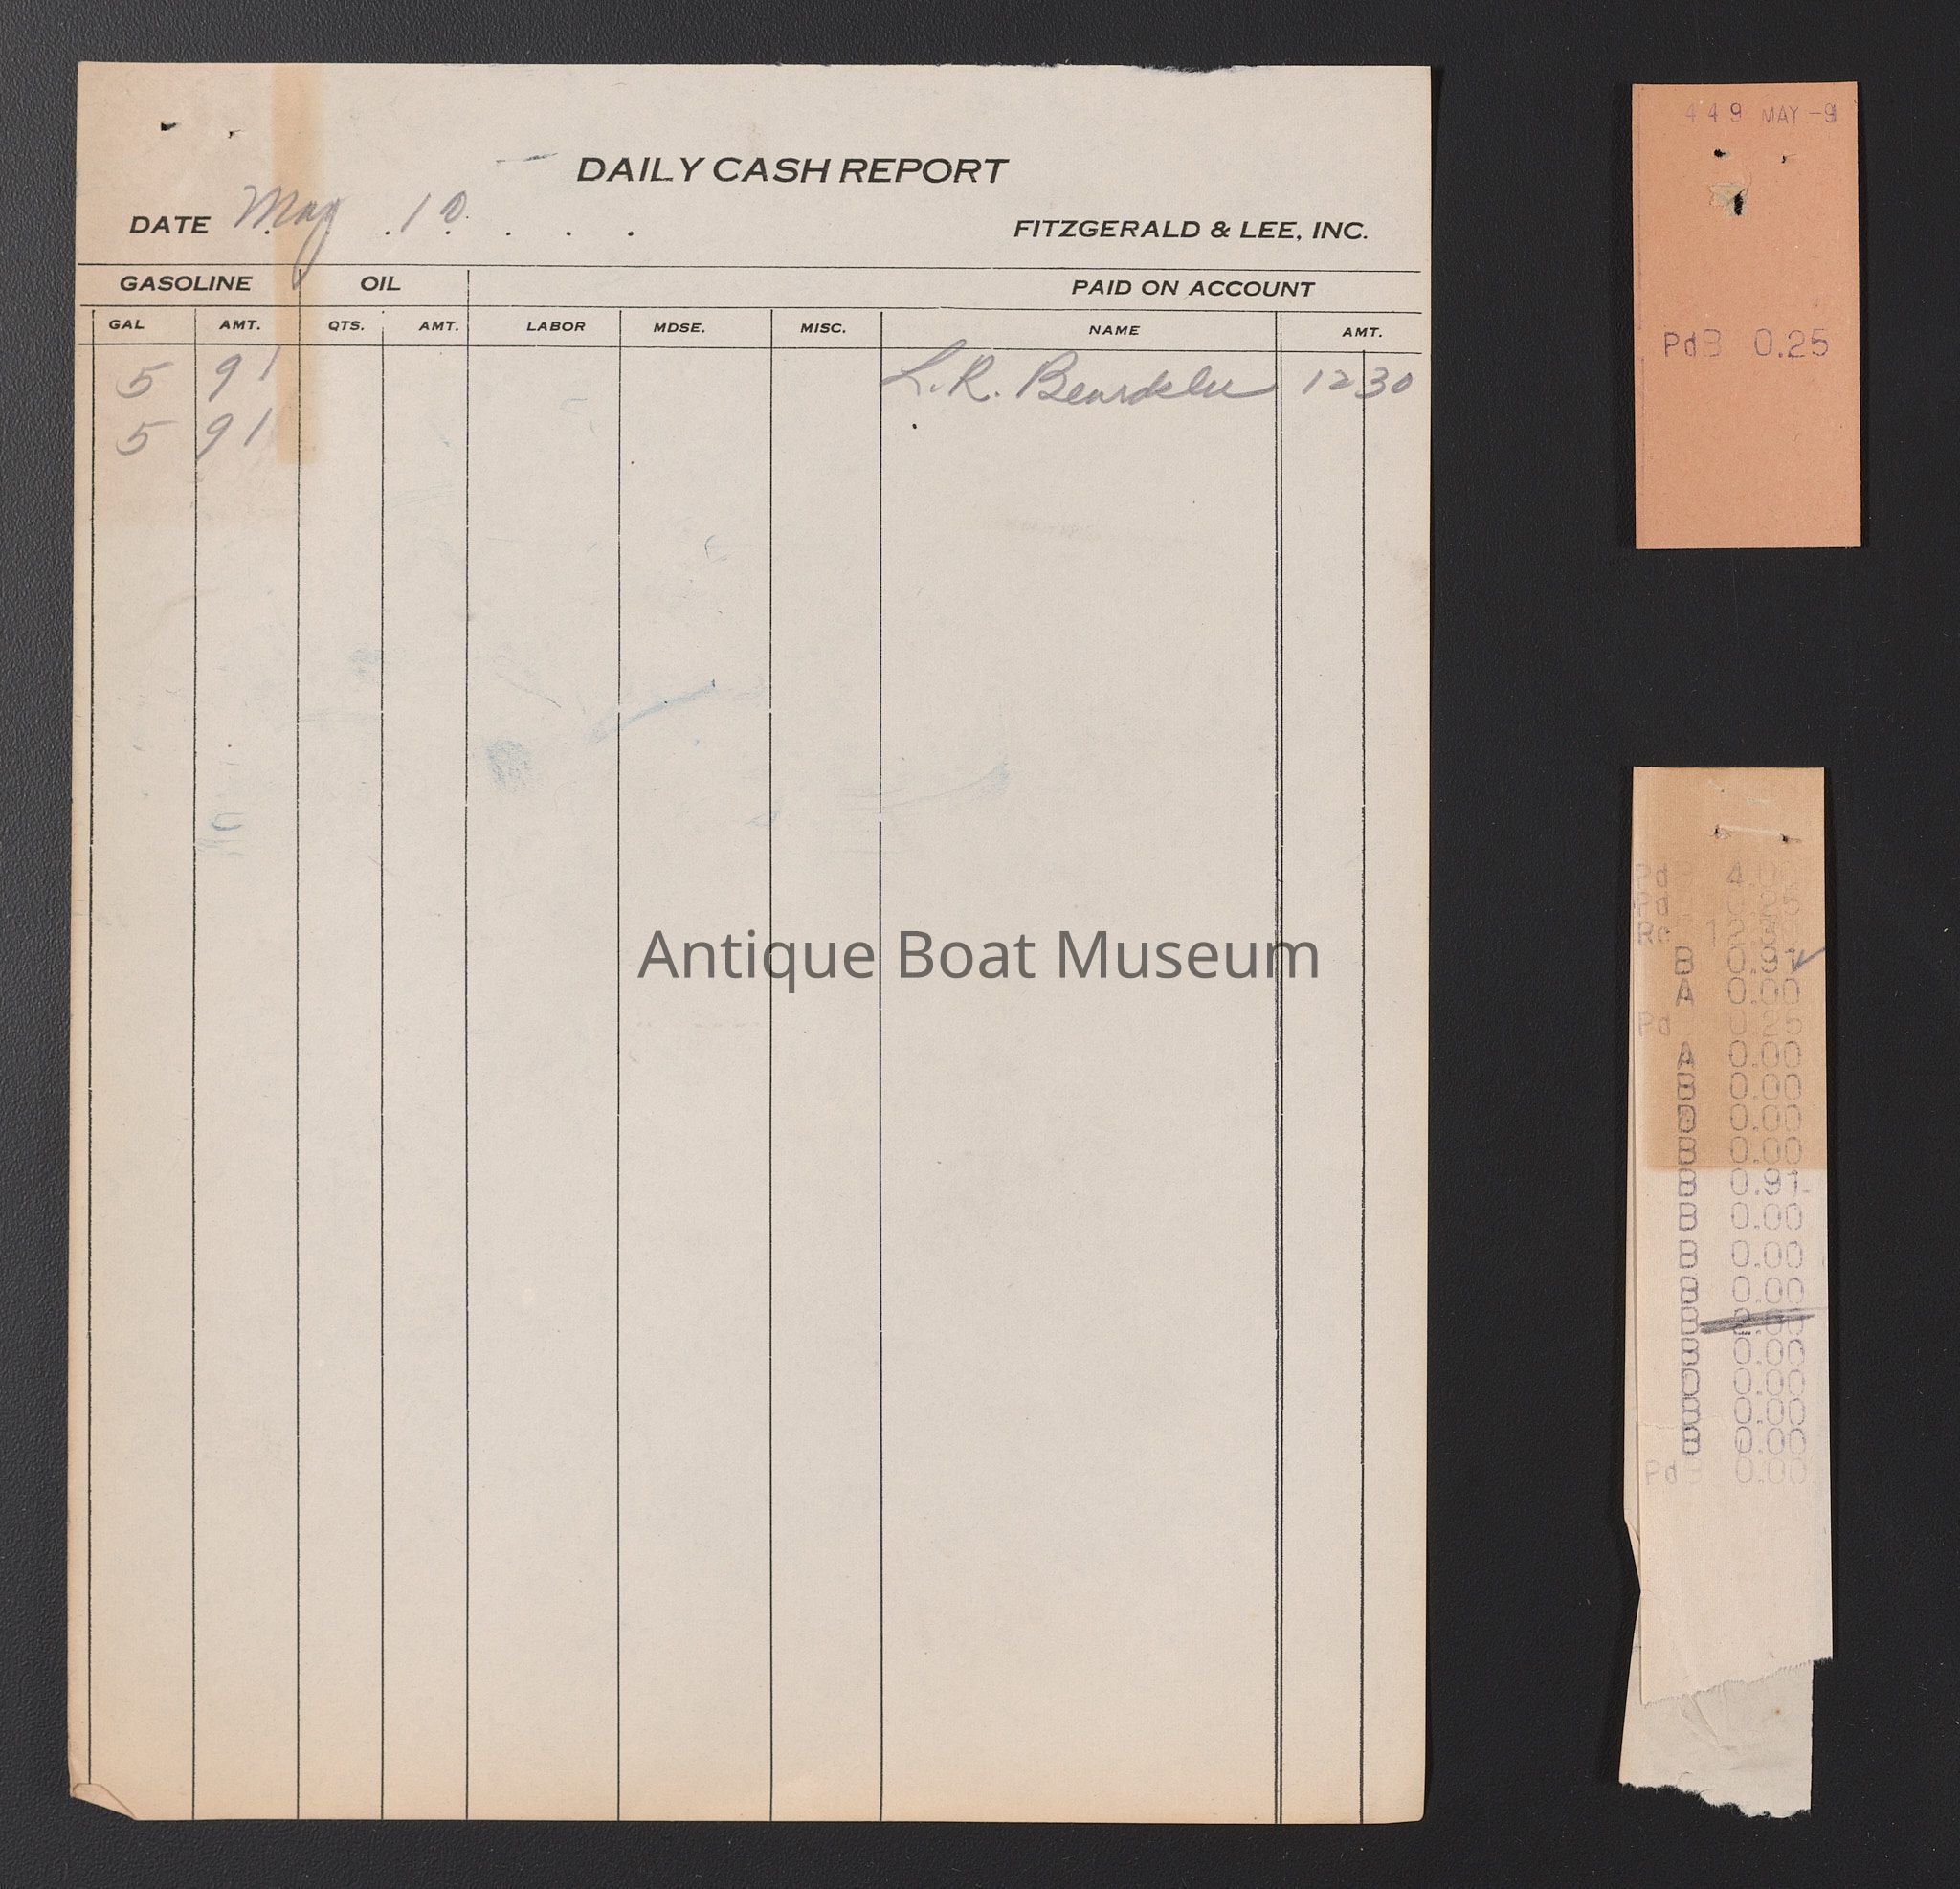 DAILY CASH REPORT
DATE May 10
FITZGERALD & LEE, INC.
GASOLINE OIL PAID ON ACCOUNT
GAL AMT. QTS. AMT. LABOR MDSE. MISC. NAME AMT.
5 91 L. R. 12 30
5 91
Antique Boat Museum
449 MAY -9
PdB 0.25
Pd
Pd
B 0.91
A 0.00
Pd 0.25
A 0.00
B 0.00
D 0.00
B 0.00
B 0.91
B 0.00
B 0.00
B 0.00
B
B 0.00
D 0.00
B 0.00
B 0.00
Pd 0.00